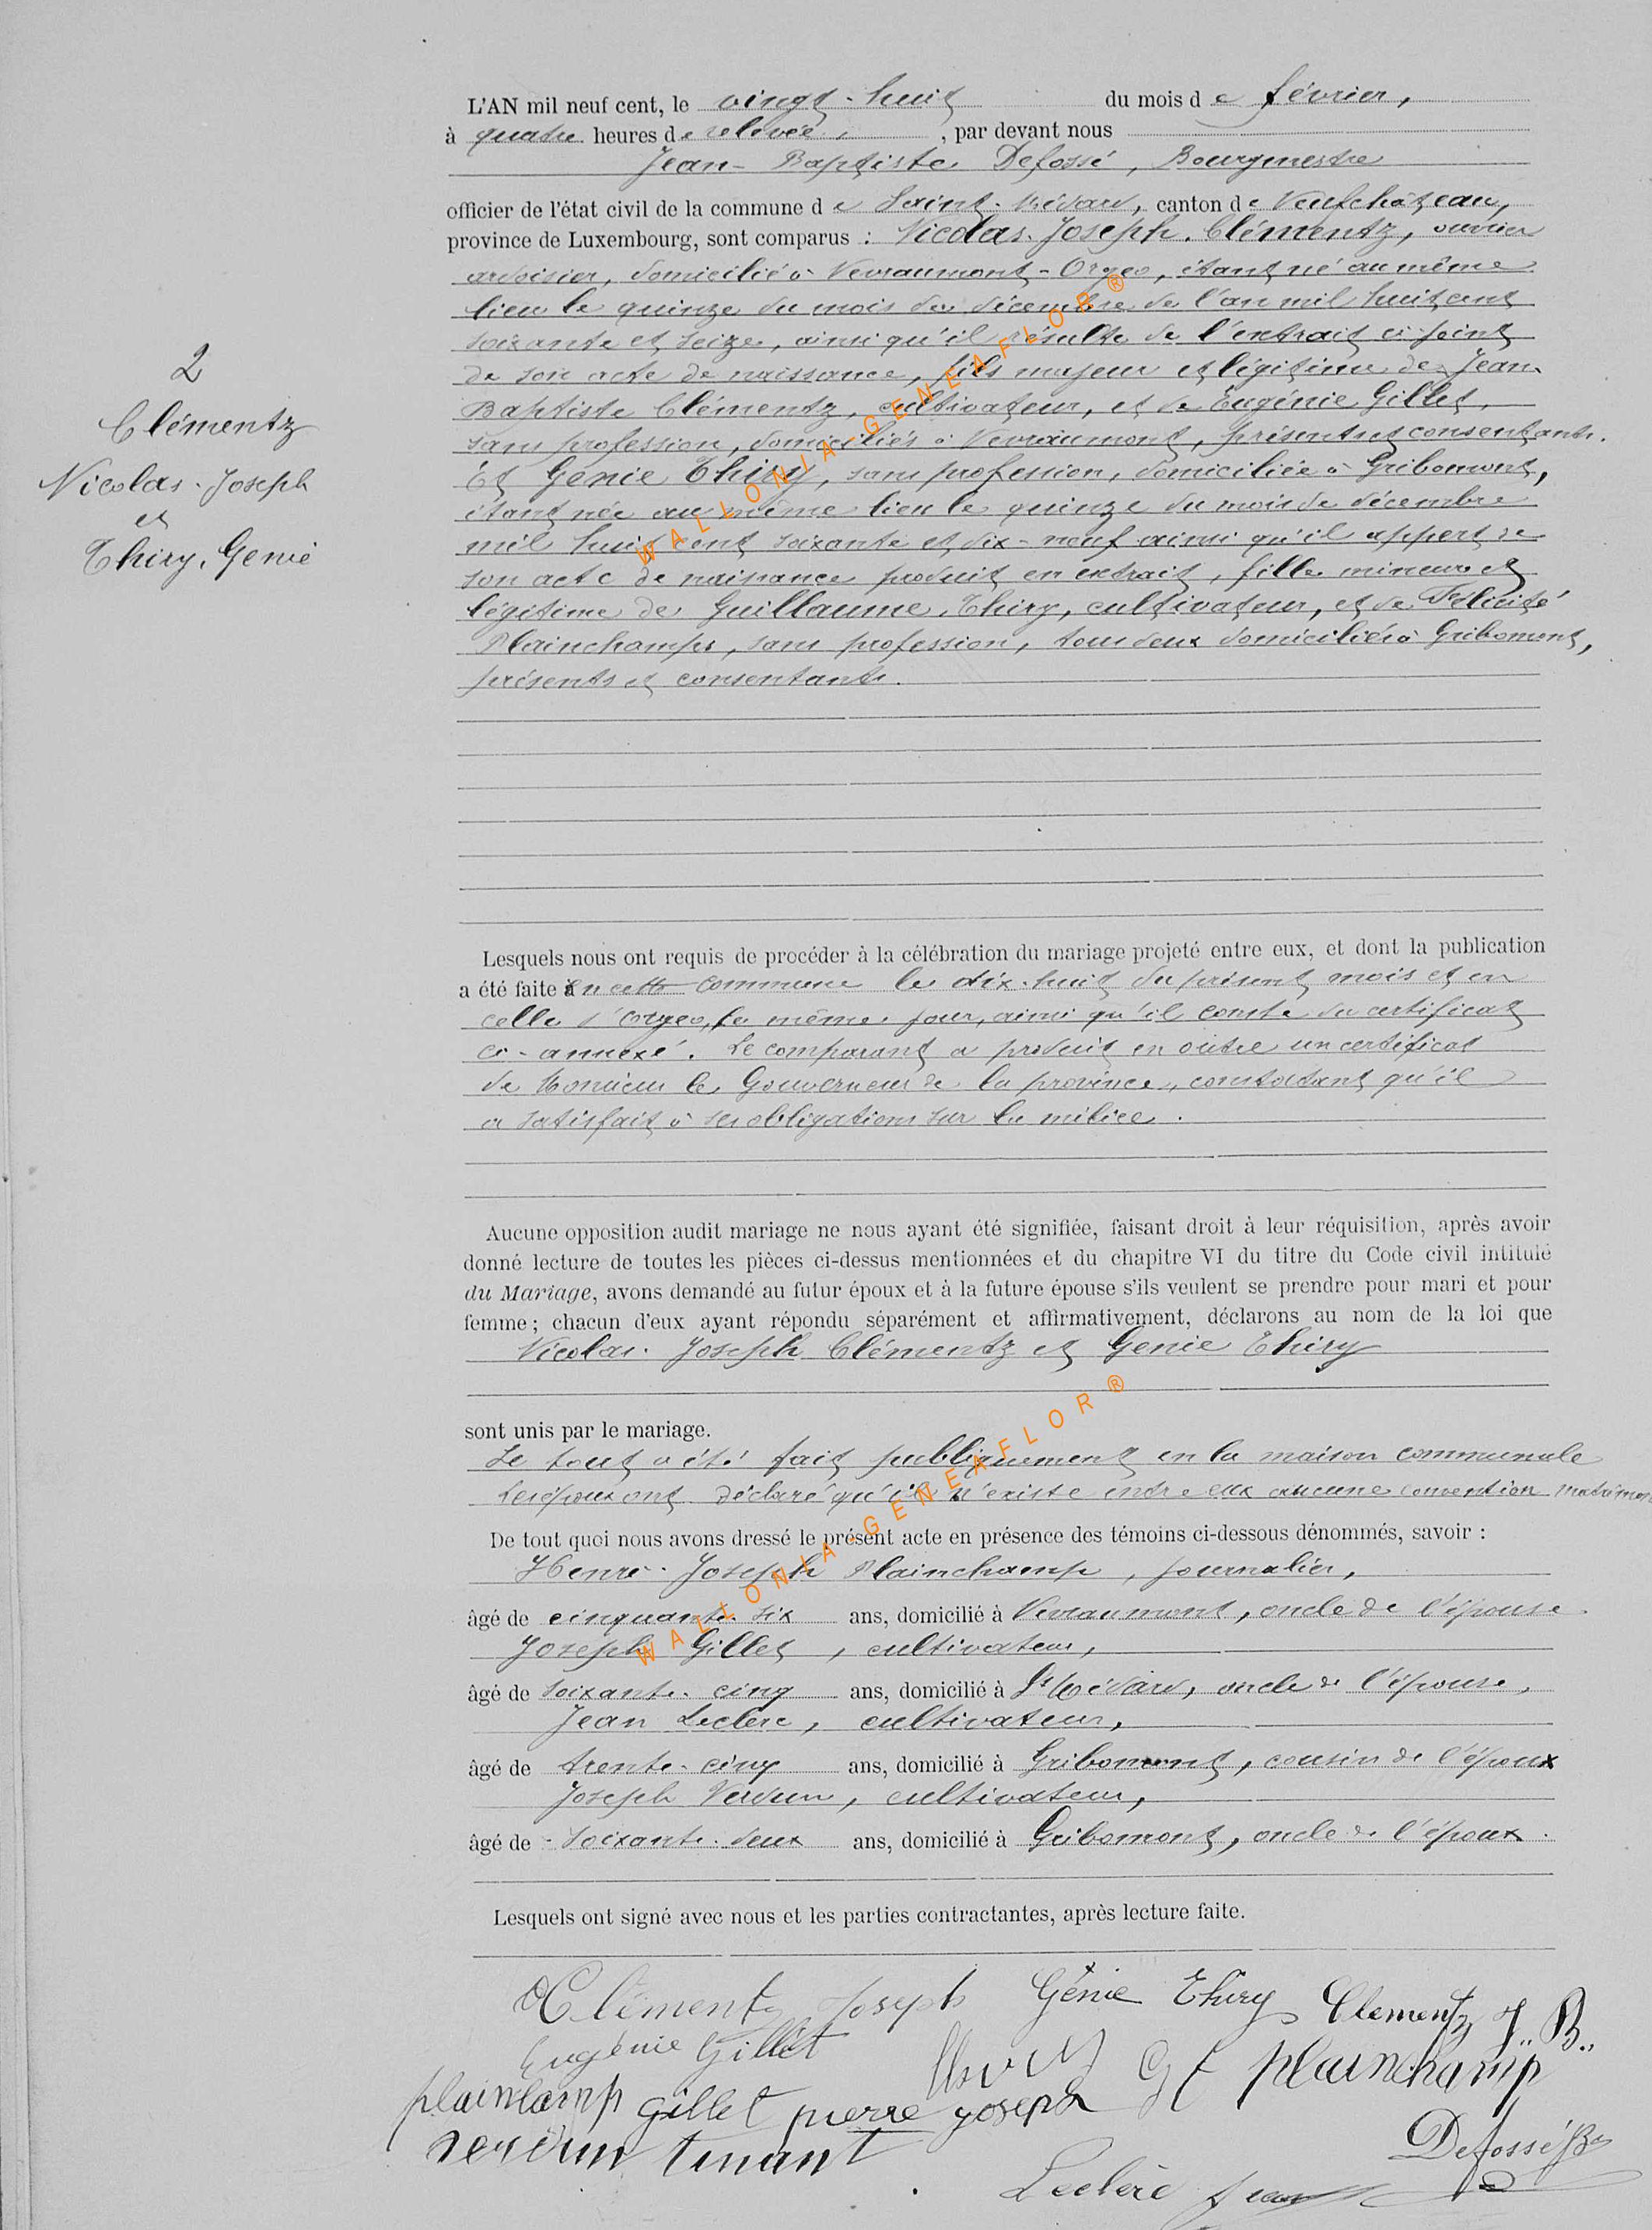 2
Clémentz
Nicolas-Joseph
et
Thiry, Genie
L'AN mil neuf cent, le vingt-huit du mois de février,
à quatre heures de relevée, par devant nous
Jean-Baptiste Defossé, Bourgmestre
officier de l'état civil de la commune de Saint-Médard, canton de Neufchâteau,
province de Luxembourg, sont comparus : Nicolas-Joseph Clémentz, ouvrier
ardoisier, domicilié à Nevraumont-Orgeo, étant né au même
lieu le quinze du mois de décembre de l'an mil huit cent
soixante et seize, ainsi qu'il résulte de l'extrait ci-joint
de son acte de naissance, fils majeur et légitime de Jean-
Baptiste Clémentz, cultivateur, et de Eugénie Gillet,
sans profession, domiciliés à Nevraumont, présents et consentants.
Et Génie Thiry, sans profession, domiciliée à Gribomont,
étant née au même lieu le quinze du mois de décembre
mil huit cent soixante et dix-neuf ainsi qu'il appert de
son acte de naissance produit en extrait, fille mineure et
légitime de Guillaume Thiry, cultivateur, et de Félicité
Plainchamps, sans profession, tous deux domiciliés à Gribomont,
présents et consentants.
Lesquels nous ont requis de procéder à la célébration du mariage projeté entre eux, et dont la publication
a été faite en cette commune le dix-huit du présent mois et en
celle d'Orgeo, le même jour, ainsi qu'il conste du certificat
ci-annexé. Le comparant a produit en outre un certificat
de Monsieur le Gouverneur de la province, constatant qu'il
a satisfait à ses obligations sur la milice.
Aucune opposition audit mariage ne nous ayant été signifiée, faisant droit à leur réquisition, après avoir
donné lecture de toutes les pièces ci-dessus mentionnées et du chapitre VI du titre du Code civil intitulé
du Mariage, avons demandé au futur époux et à la future épouse s'ils veulent se prendre pour mari et pour
femme ; chacun d'eux ayant répondu séparément et affirmativement, déclarons au nom de la loi que
Nicolas-Joseph Clémentz et Genie Thiry
sont unis par le mariage.
Le tout a été fait publiquement en la maison communale
Les époux ont déclaré qu'il n'existe entre eux aucune convention
De tout quoi nous avons dressé le présent acte en présence des témoins ci-dessous dénommés, savoir :
Henri-Joseph Plainchamp, journalier,
âgé de cinquante-six ans, domicilié à Nevraumont, oncle de l'épouse
Joseph Gillet, cultivateur,
âgé de soixante-cinq ans, domicilié à St Médard, oncle de l'épouse,
Jean Leclère, cultivateur,
âgé de trente-cinq ans, domicilié à Gribomont, cousin de l'époux
Joseph Verdun, cultivateur,
âgé de soixante-deux ans, domicilié à Gribomont, oncle de l'époux.
Lesquels ont signé avec nous et les parties contractantes, après lecture faite.
Clémentz Joseph Génie Thiry Clementz J.. B..
Eugénie Gillet
plainchamp
plainlamp gillet pierre joseph
Defossé
verdun
Leclère Jean
WALLONIA-GENEAFLOR ®
WALLONIA-GENEAFLOR ®